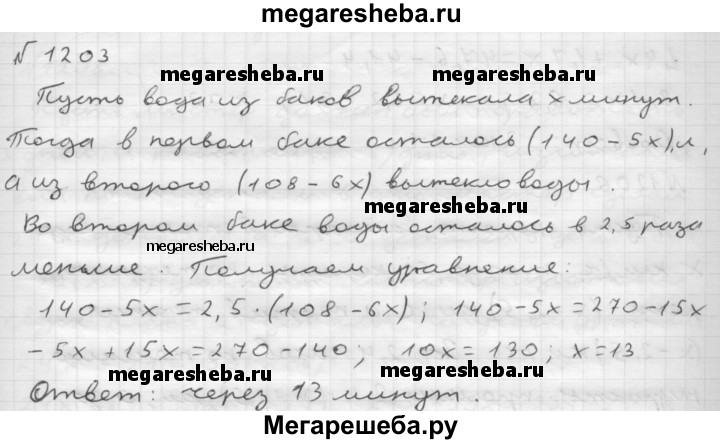 megaresheba.ru
№ 1203
megaresheba.ru
Пусть вода из баков вытекала x минут.
Тогда в первом баке осталось (140-5x) л,
а из второго (108-6x) вытекло воды.
megaresheba.ru
Во втором баке воды осталось в 2,5 раза
megaresheba.ru
меньше. Получаем уравнение:
140-5x=2,5·(108-6x); 140-5x=270-15x
-5x+15x=270-140; 10x=130; x=13
megaresheba.ru megaresheba.ru
Ответ: через 13 минут.
Мегарешеба.ру